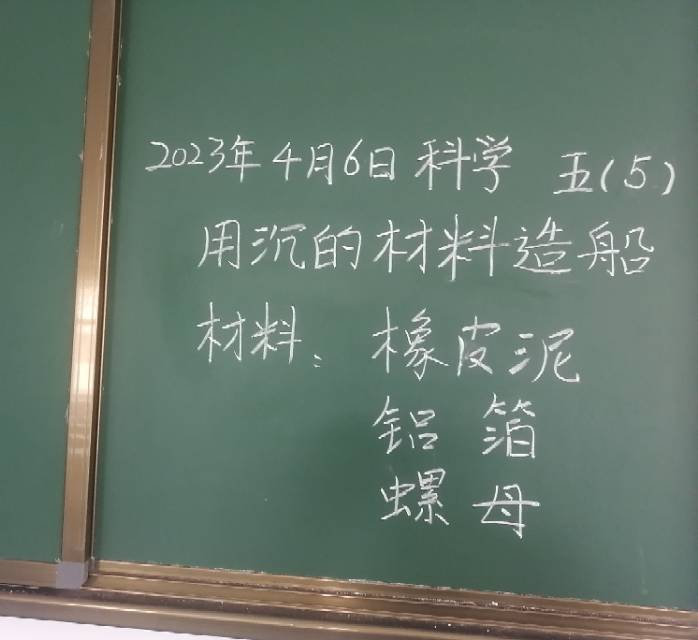 2023年4月6日 科学 五(5)
用沉的材料造船
材料: 橡皮泥
铝箔
螺母